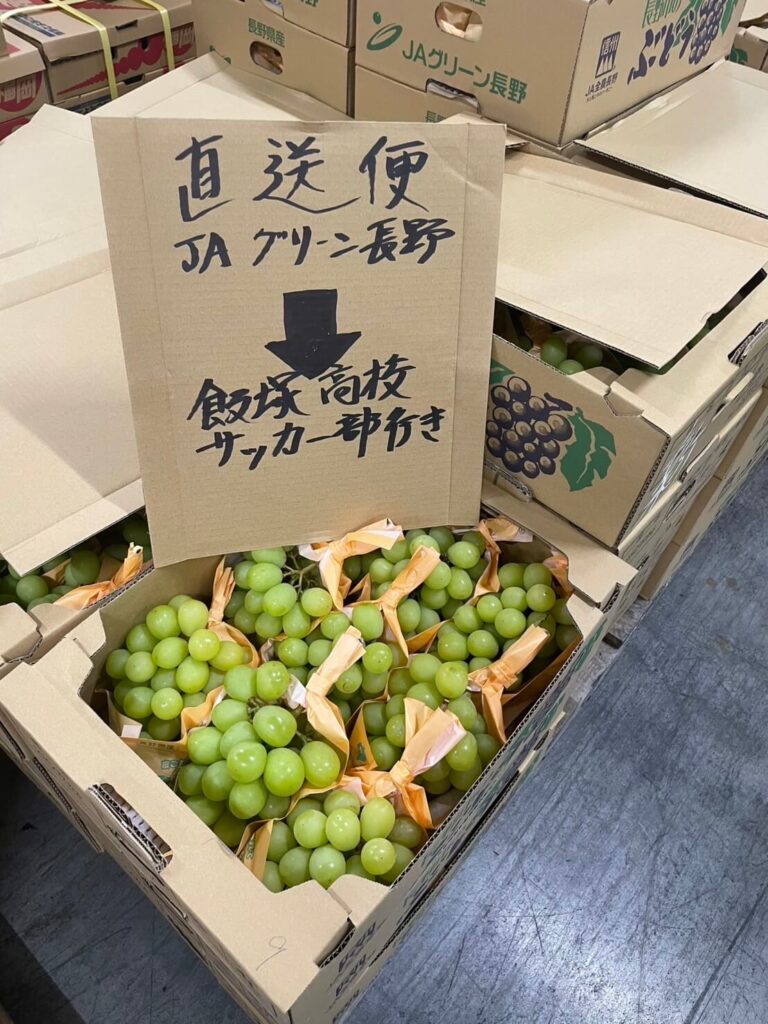 長野県産
JAグリーン長野
長野の
ぶどう
信州
JA全農長野
直送便
JA グリーン長野
飯塚高校
サッカー部行き